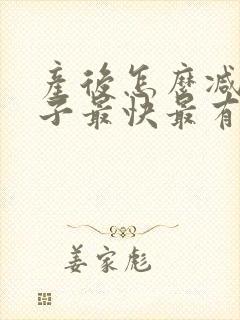 產後怎麼減
子最快最有
姜家彪